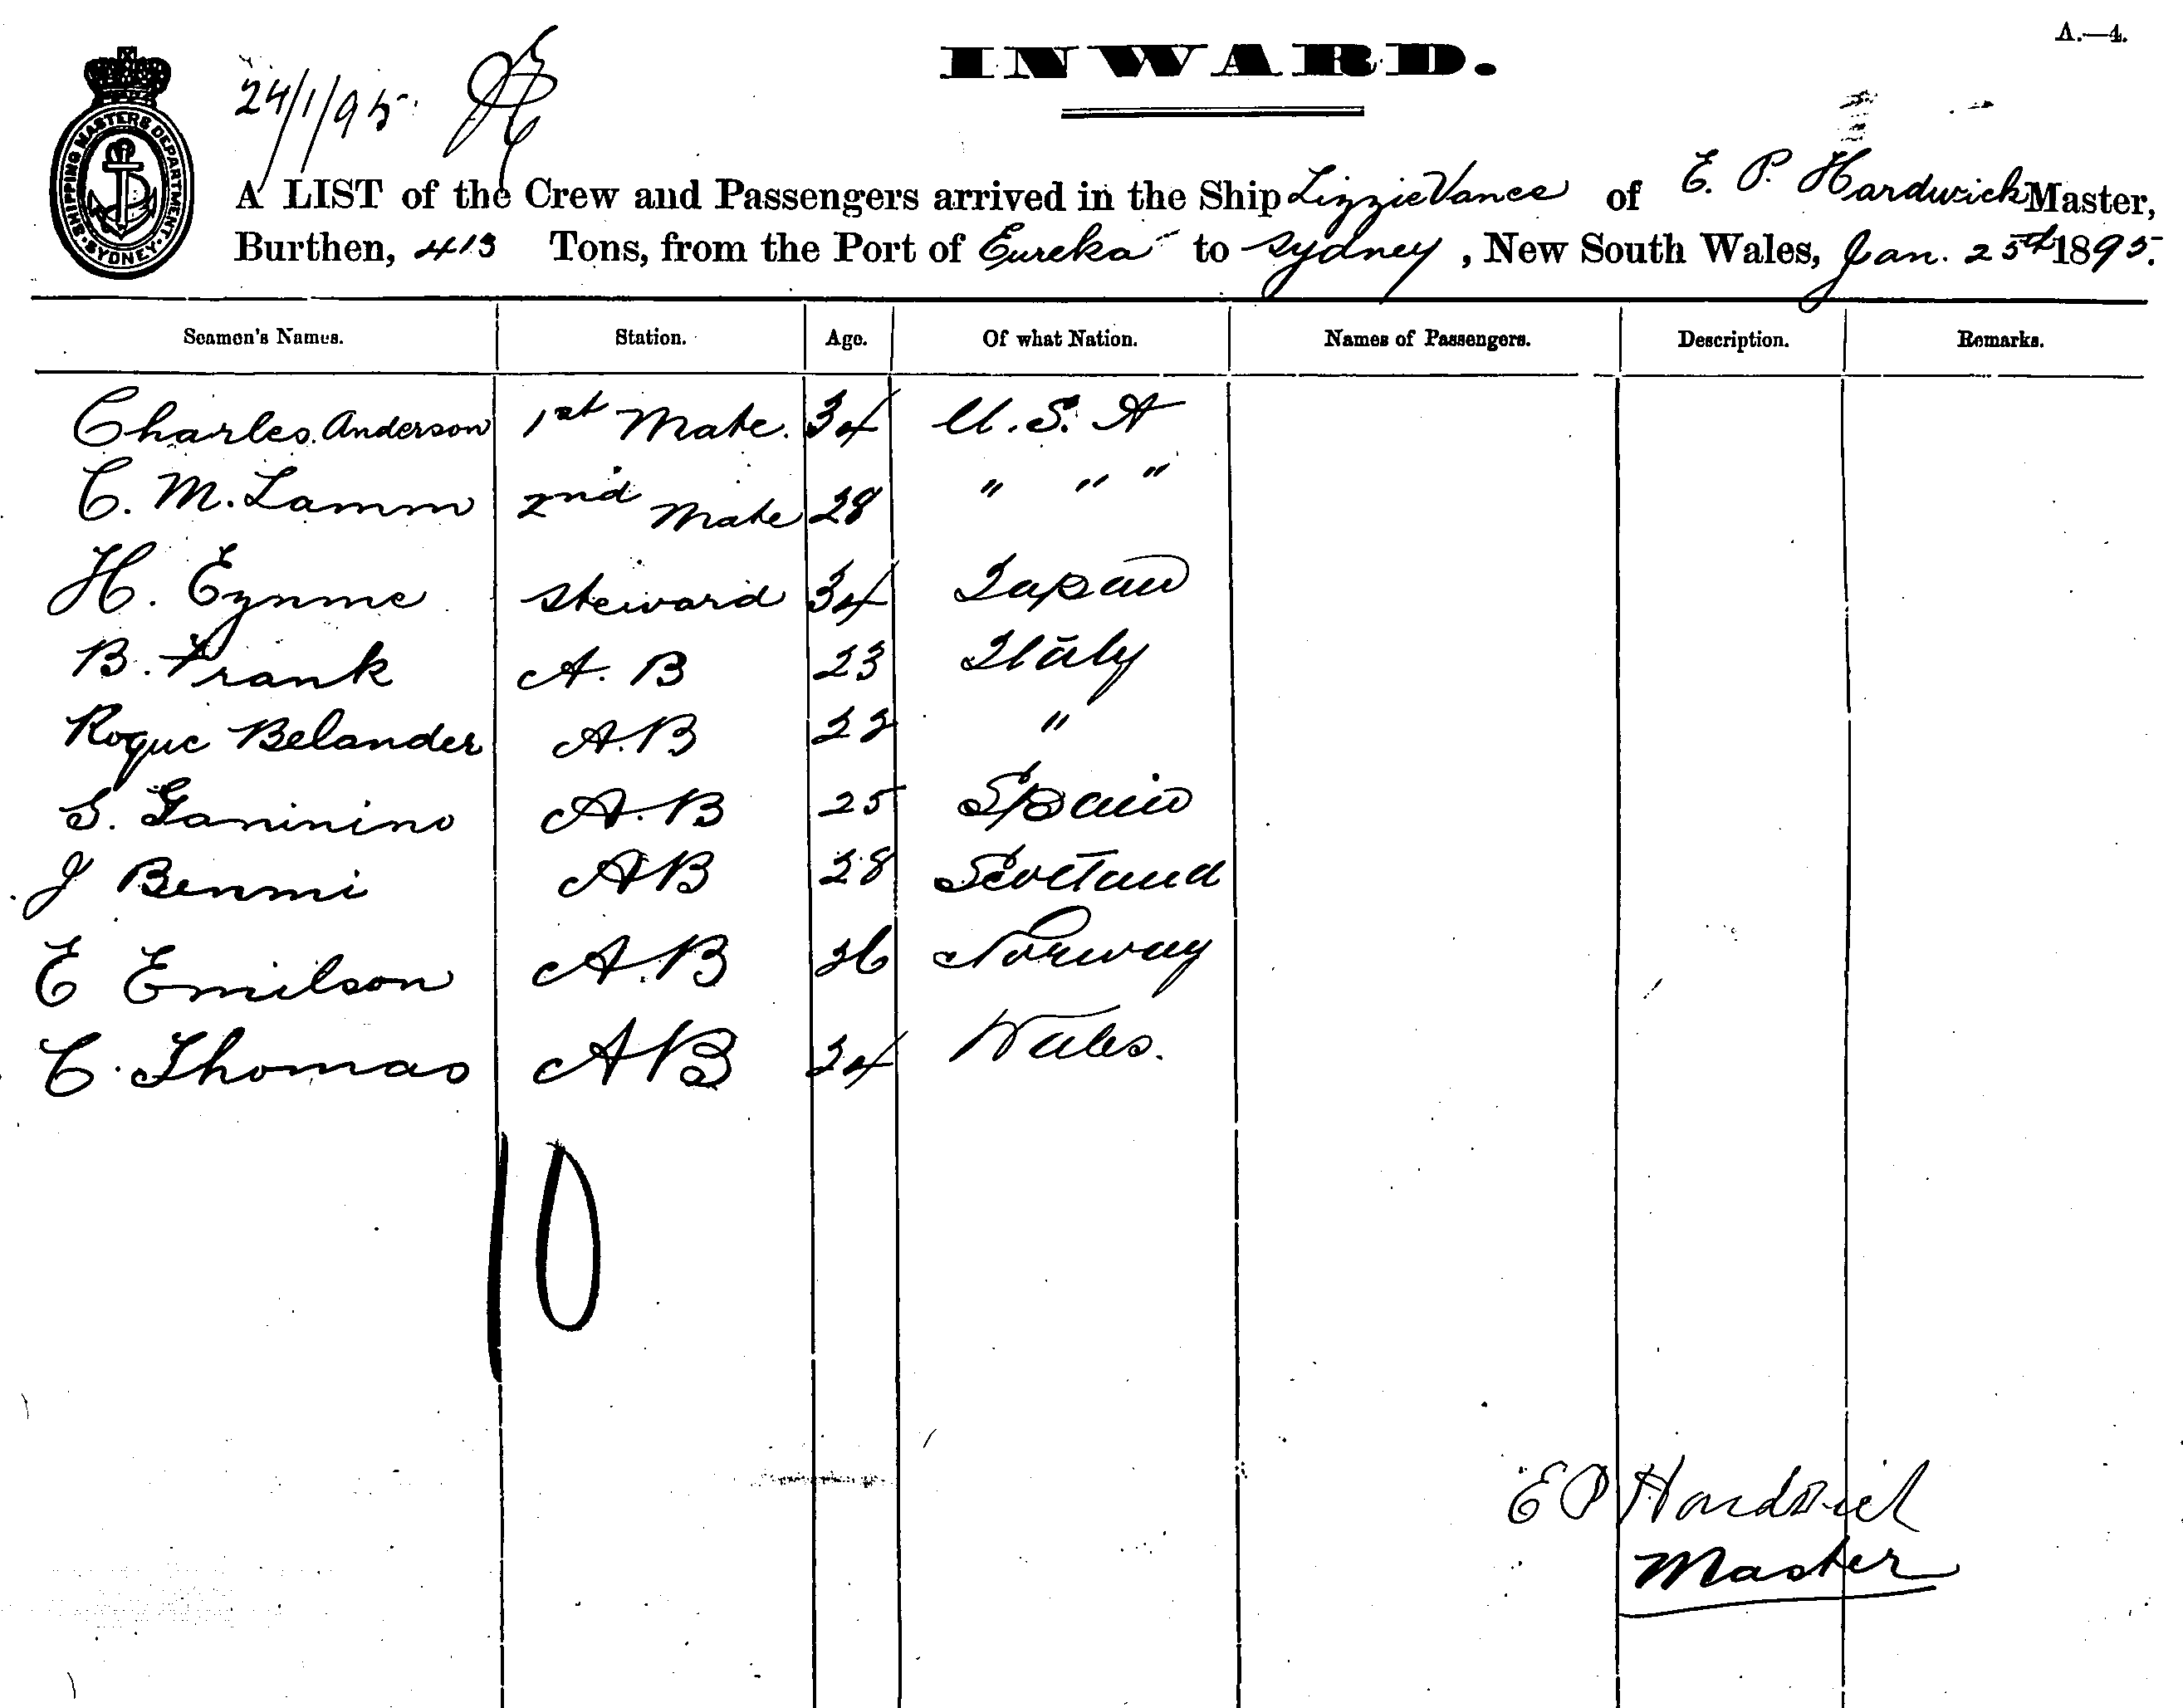 A.—4.
INWARD.
24/1/95
SHIPPING MASTERS DEPARTMENT. SYDNEY.
A LIST of the Crew and Passengers arrived in the Ship Lizzie Vance of E. P. Hardwick Master,
Burthen, 413 Tons, from the Port of Eureka to Sydney, New South Wales, Jan. 25th 1895.
Seamen's Names. Station. Age. Of what Nation. Names of Passengers. Description. Remarks.
Charles Anderson 1st Mate. 34 U.S.A
C. M. Lamm 2nd Mate 28 " " "
H. Eynme Steward 34 Japan
B. Frank A.B 23 Italy
Roque Belander A.B 22 "
S. Ganinino A.B 25 Spain
J Benmi AB 28 Scotland
E Emilson A.B 26 Norway
C. Thomas AB 24 Wales.
10
E P Hardwick
Master